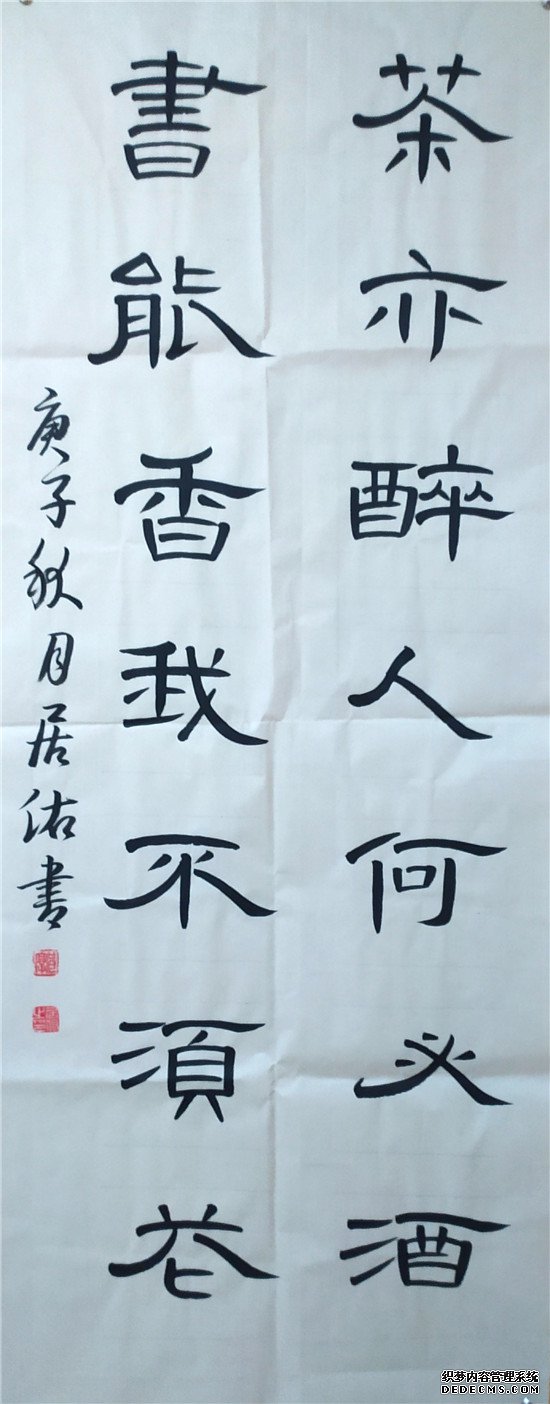 茶亦醉人何必酒
書能香我不須花
庚子秋月居佑書
织梦内容管理系统
DEDECMS.COM